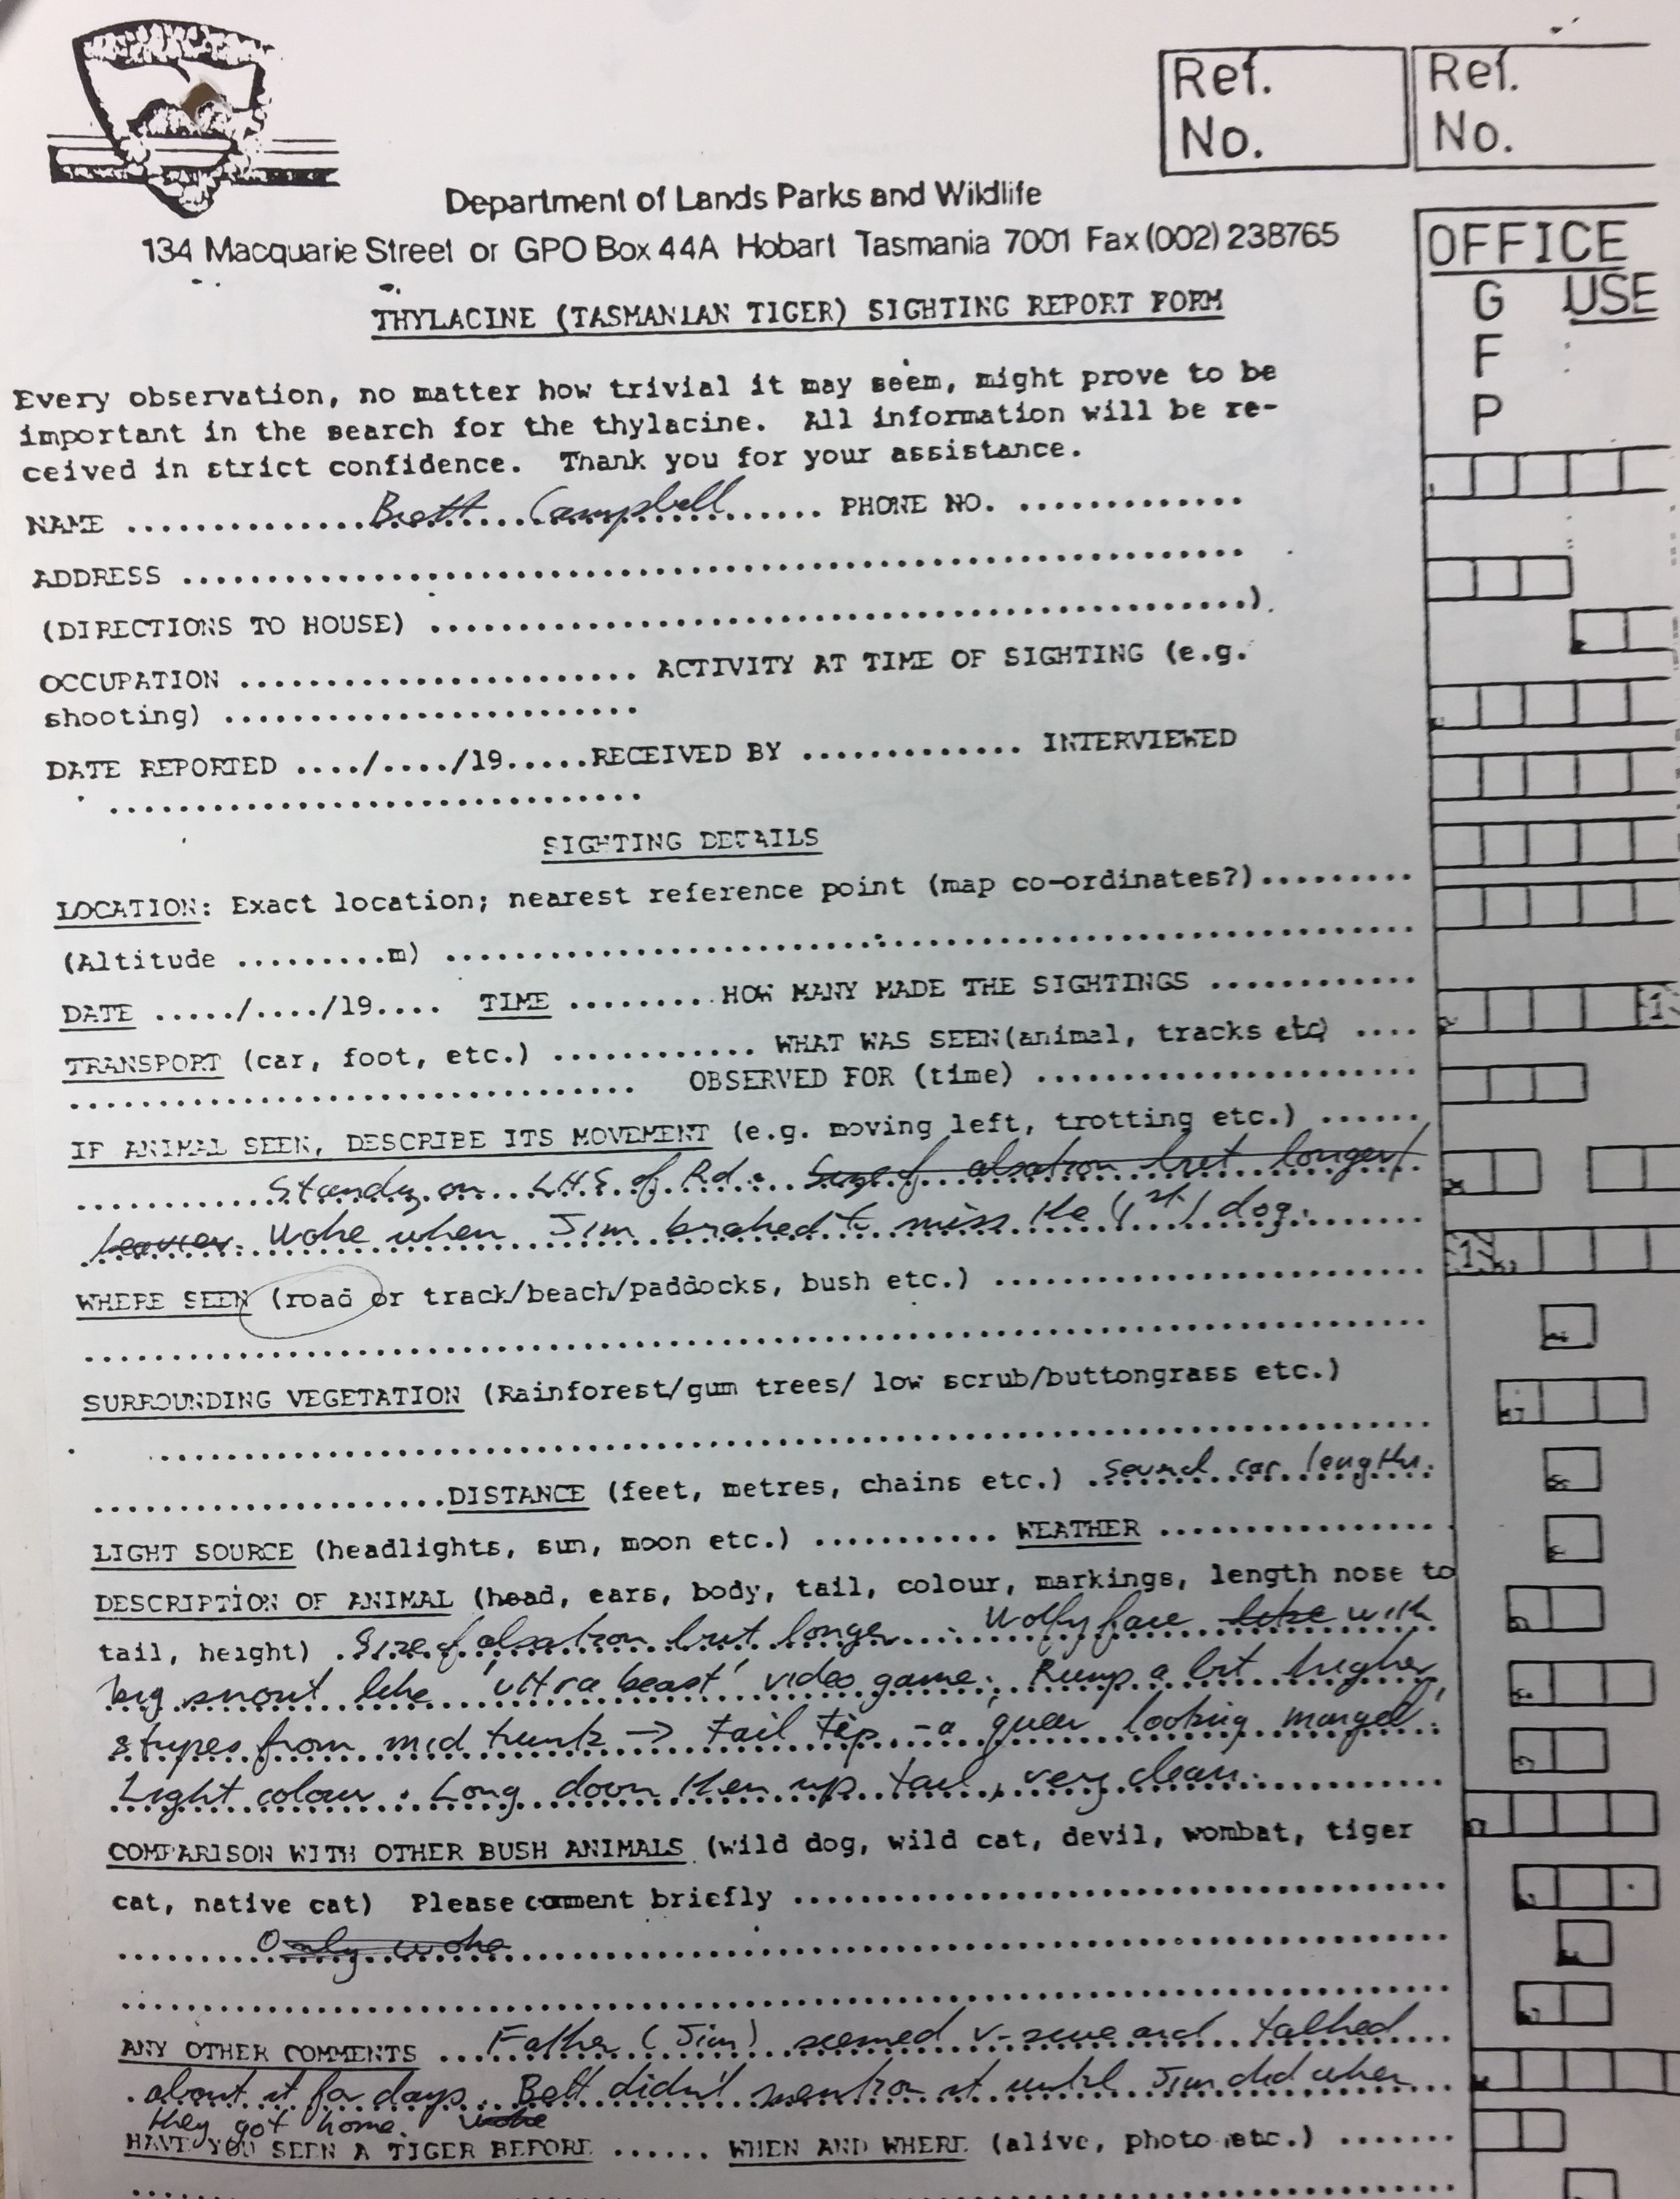 Ref.
No.
Ref.
No.
Department of Lands Parks and Wildlife
134 Macquarie Street or GPO Box 44A Hobart Tasmania 7001 Fax (002) 238765
OFFICE
USE
G
F
P
THYLACINE (TASMANIAN TIGER) SIGHTING REPORT FORM
Every observation, no matter how trivial it may seem, might prove to be
important in the search for the thylacine. All information will be re-
ceived in strict confidence. Thank you for your assistance.
NAME .................Brett Campbell....... PHONE NO. .............
ADDRESS .............................................................
(DIRECTIONS TO HOUSE) ...............................................)
OCCUPATION ....................... ACTIVITY AT TIME OF SIGHTING (e.g.
shooting) ........................
DATE REPORTED ..../..../19.....RECEIVED BY ............. INTERVIEWED
...............................
SIGHTING DETAILS
LOCATION: Exact location; nearest reference point (map co-ordinates?).........
(Altitude .........m) ........................................................
DATE ...../..../19.... TIME ......... HOW MANY MADE THE SIGHTINGS ............
TRANSPORT (car, foot, etc.) ............ WHAT WAS SEEN(animal, tracks etc) ....
................................. OBSERVED FOR (time) ......................
IF ANIMAL SEEN, DESCRIBE ITS MOVEMENT (e.g. moving left, trotting etc.) ......
Standg on LHS of Rd. Size of alsatron but longer/
heavier. Woke when Jim braked to miss the (1st) dog.
WHERE SEEN (road or track/beach/paddocks, bush etc.) .........................
..............................................................................
SURROUNDING VEGETATION (Rainforest/gum trees/ low scrub/buttongrass etc.)
..............................................................................
.....................DISTANCE (feet, metres, chains etc.) .. car lengths.
LIGHT SOURCE (headlights, sun, moon etc.) ........... WEATHER ................
DESCRIPTION OF ANIMAL (head, ears, body, tail, colour, markings, length nose to
tail, height) .Size of alsatron but longer... Wolfy face like with
big snout like 'ultra beast' video game. Rump a bit higher,
stripes from mid trunk → tail tip - a 'queer looking mongrel'.
Light colour. Long down then up tail, very clear.
COMPARISON WITH OTHER BUSH ANIMALS (wild dog, wild cat, devil, wombat, tiger
cat, native cat) Please comment briefly ......................................
Only woke
..............................................................................
ANY OTHER COMMENTS ... Father (Jim) seemed v. sure and talked
about it for days. Bett didn't mention it until Jim did when
they got home. woke
HAVE YOU SEEN A TIGER BEFORE ...... WHEN AND WHERE (alive, photo etc.) .......